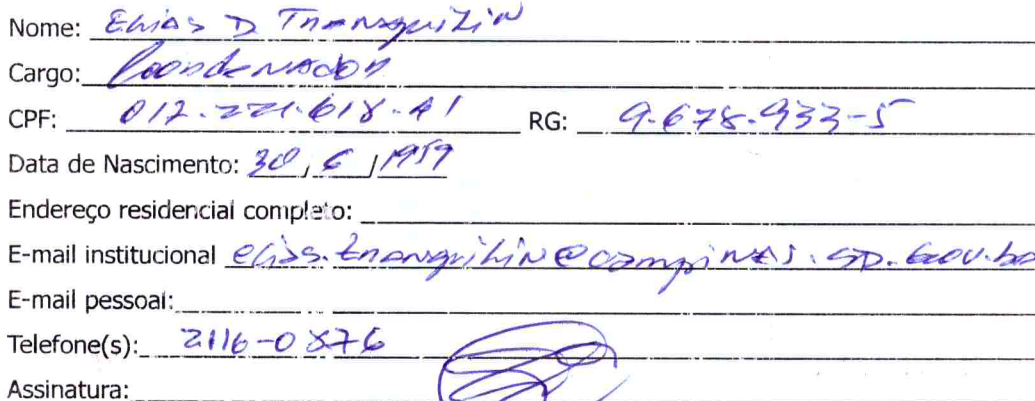 Nome: Elias D Tranquilin
Cargo: Coordenador
CPF: 012.221.618-41 RG: 9.678.933-5
Data de Nascimento: 30 / 6 / 1959
Endereço residencial completo:
E-mail institucional elias.tranquilin@campinas.sp.gov.br
E-mail pessoal:
Telefone(s): 2116-0876
Assinatura: